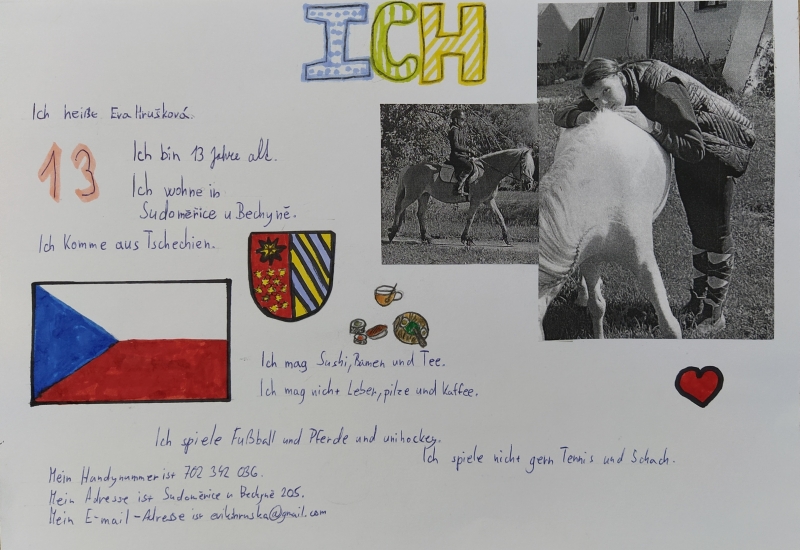 ICH
Ich heiße Eva Hrušková.
13
Ich bin 13 Jahre alt.
Ich wohne in
Sudoměřice u Bechyně.
Ich Komme aus Tschechien.
Ich mag Sushi, Ramen und Tee.
Ich mag nicht Leber, pilze und Kaffee.
Ich spiele Fußball und Pferde und unihockey.
Ich spiele nicht gern Tennis und Schach.
Mein Handynummer ist 702 342 036.
Mein Adresse ist Sudoměřice u Bechyně 205.
Mein E-mail-Adresse ist